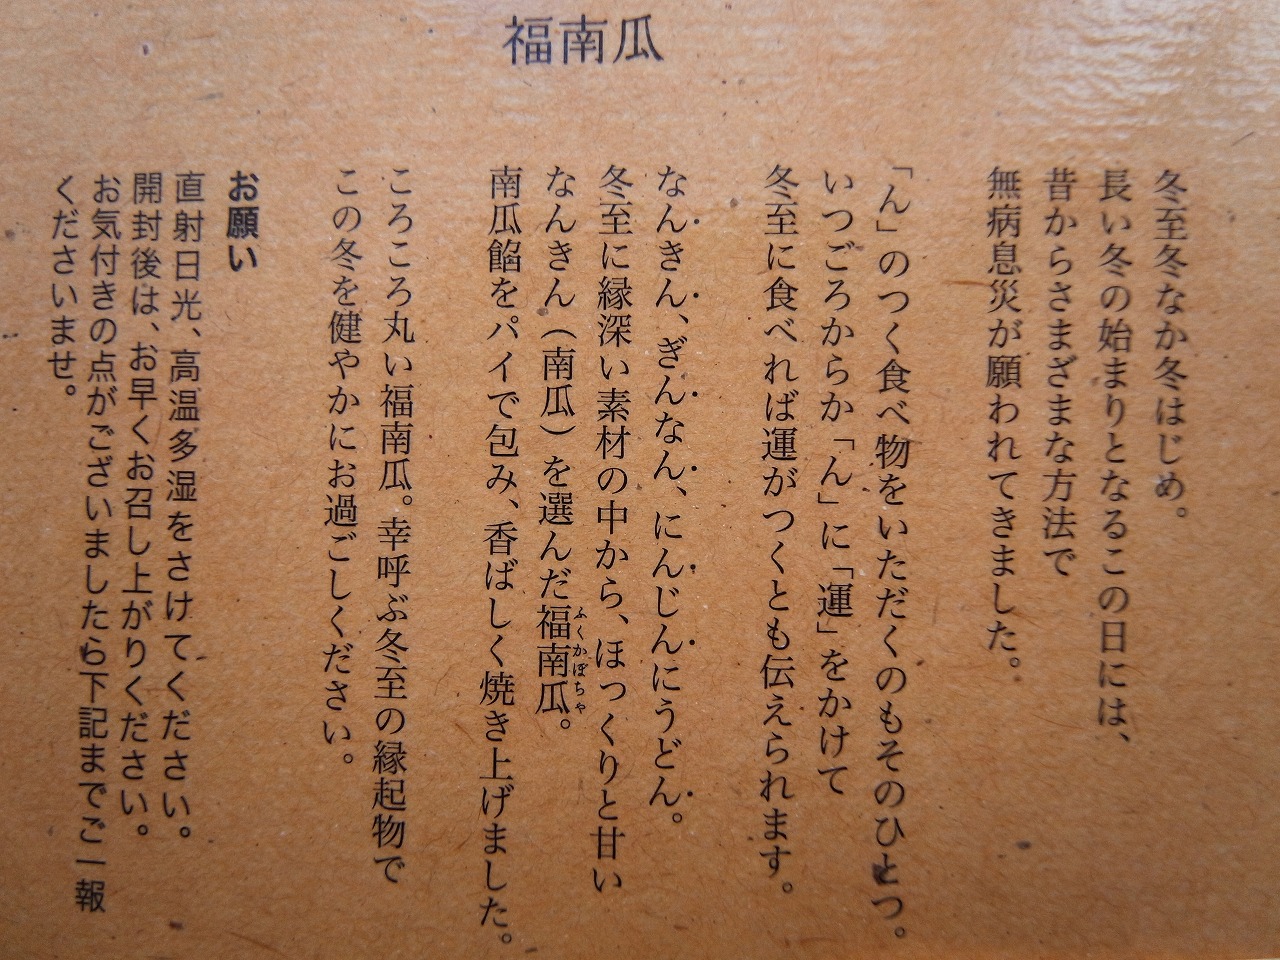 福南瓜
冬至冬なか冬はじめ。
長い冬の始まりとなるこの日には、
昔からさまざまな方法で
無病息災が願われてきました。
「ん」のつく食べ物をいただくのもそのひとつ。
いつごろからか「ん」に「運」をかけて
冬至に食べれば運がつくとも伝えられます。
なんきん、ぎんなん、にんじんにうどん。
冬至に縁深い素材の中から、ほっくりと甘い
なんきん（南瓜）を選んだ福南瓜。
ふくかぼちゃ
南瓜餡をパイで包み、香ばしく焼き上げました。
ころころ丸い福南瓜。幸呼ぶ冬至の縁起物で
この冬を健やかにお過ごしください。
お願い
直射日光、高温多湿をさけてください。
開封後は、お早くお召し上がりください。
お気付きの点がございましたら下記までご一報
くださいませ。